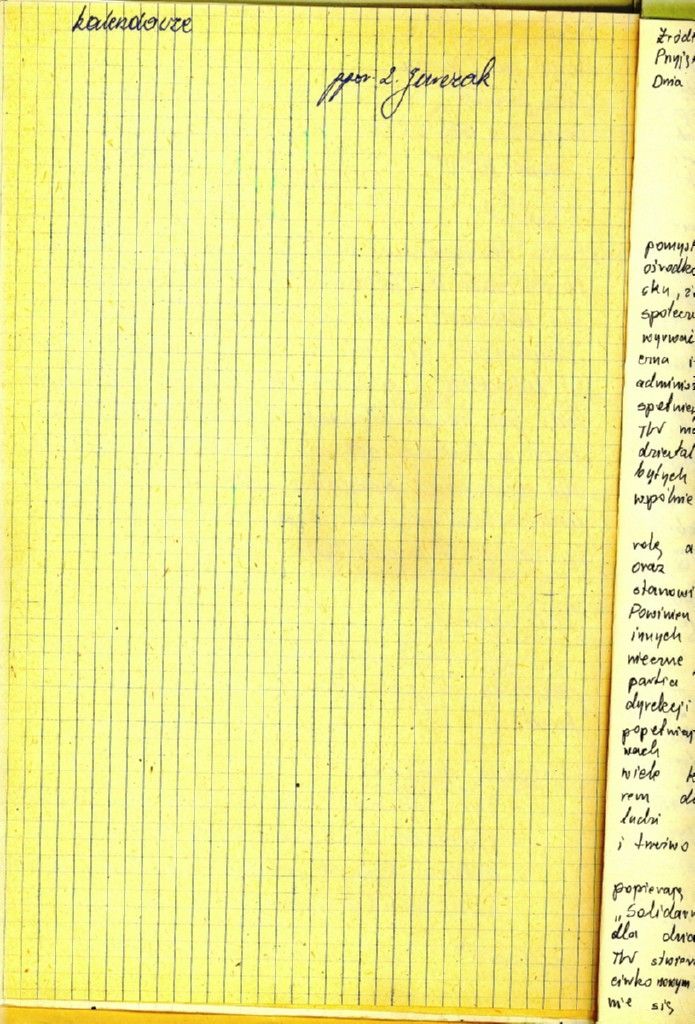 kalendarze
ppor. Z.
Źródł
Przyją
Dnia
pomysł
ośrodka
sku, zi
społeczn
wyrwać
czna i
administ
spełnie
TW mó
działal
byłych
wspólnie
rolę a
oraz
stanowi
Powinien
innych
nieczne
partia
dyrekcji
popełniaj
wach
wiele k
rem do
ludzi
i trzeźwo
popierają
„Solidarn
dla dzia
TW stwier
nowym
nie się